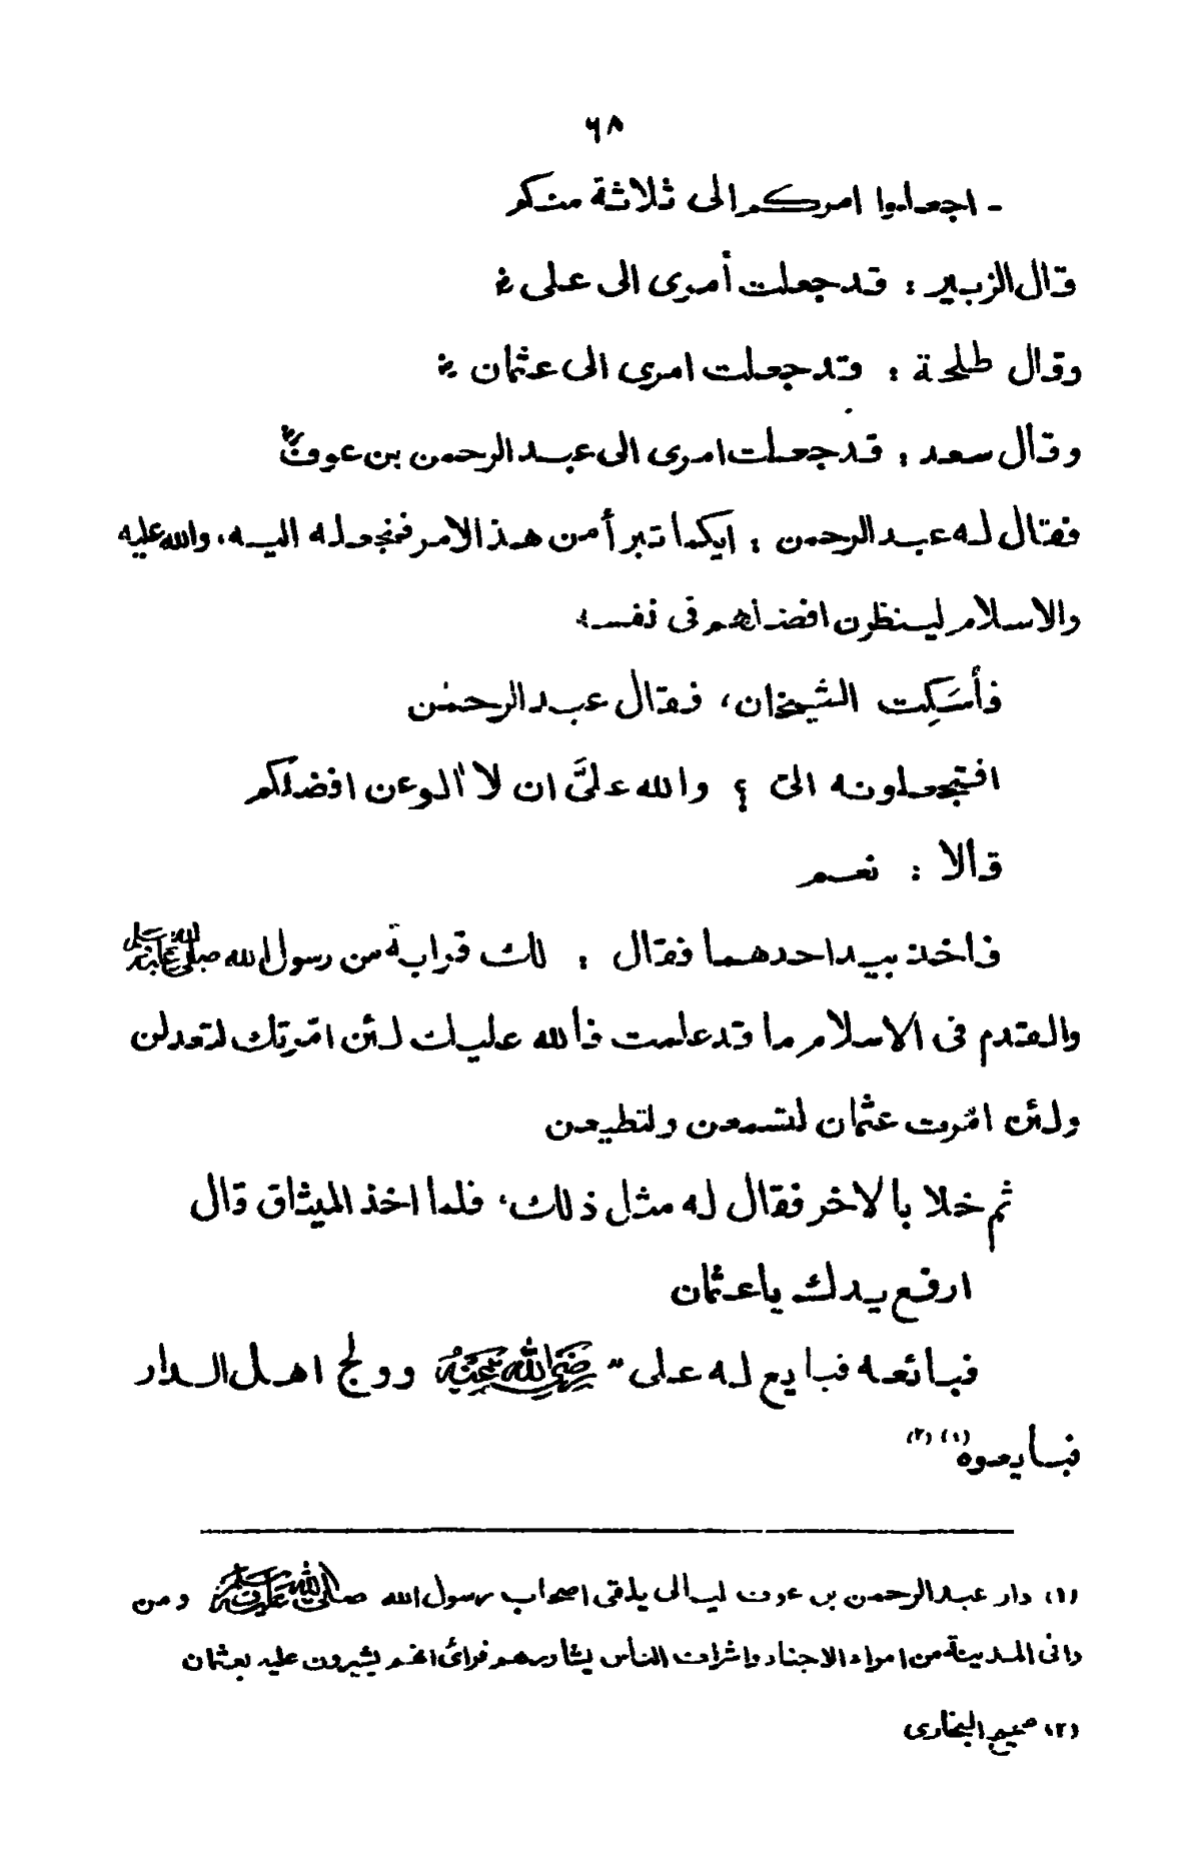 ٦٨
- اجعلوا امركم الى ثلاثة منكم
قال الزبير : قد جعلت أمرى الى على رض
وقال طلحة : وقد جعلت امرى الى عثمان رض
وقال سعد : قد جعلت امرى الى عبد الرحمن بن عوف رض
فقال له عبد الرحمن : ايكما تبرأ من هذا الامر فنجعله اليه، والله عليه
والاسلام لينظرن افضلهم فى نفسه
فأسكِت الشيخان، فقال عبد الرحمٰن
افتجعلونه الىّ ؟ والله علىَّ ان لا آلو عن افضلكم
قالا : نعم
فاخذ بيد احدهما فقال : لك قرابة من رسول الله صلى الله عليه وسلم
والقدم فى الاسلام ما قد علمت فالله عليك لئن امّرتك لتعدلن
ولئن امّرت عثمان لتسمعن ولتطيعن
ثم خلا بالاخر فقال له مثل ذلك، فلما اخذ الميثاق قال
ارفع يدك يا عثمان
فبائعه فبايع له على رضي الله عنه وولج اهل الدار
فبايعوه (١) (٢)
(١) دار عبد الرحمن بن عوف ليالى يلقى اصحاب رسول الله صلى الله عليه وسلم ومن
وافى المدينة من امراء الاجناد واشراف الناس يشاورهم فرأى انهم يشيرون عليه بعثمان
(٢) صحيح البخارى